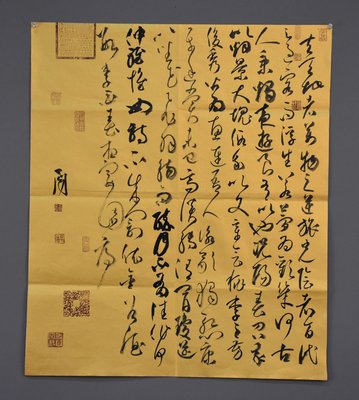 夫天地者萬物之逆旅光陰者百代
之過客而浮生若夢為歡幾何古
人秉燭夜遊良有以也況陽春召我
以煙景大塊假我以文章會桃李之芳
俊秀皆為惠連吾人詠歌獨慚康
樂幽賞未已高談轉清開瓊筵
以坐花飛羽觴而醉月不有佳作何
伸雅懷如詩不成罰依金谷酒
數李白春夜宴